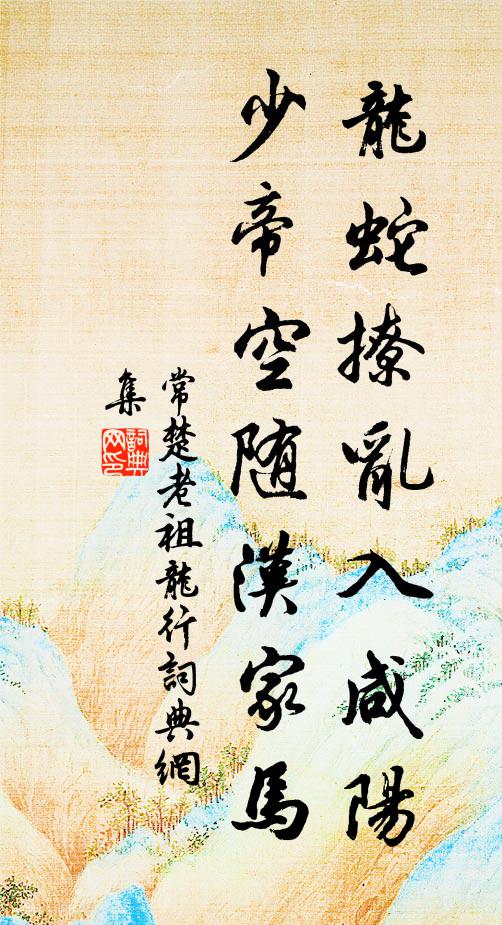 龍蛇撩亂入咸陽
少帝空随漢家馬
常楚老祖龍行詞典網
集
詞典網印